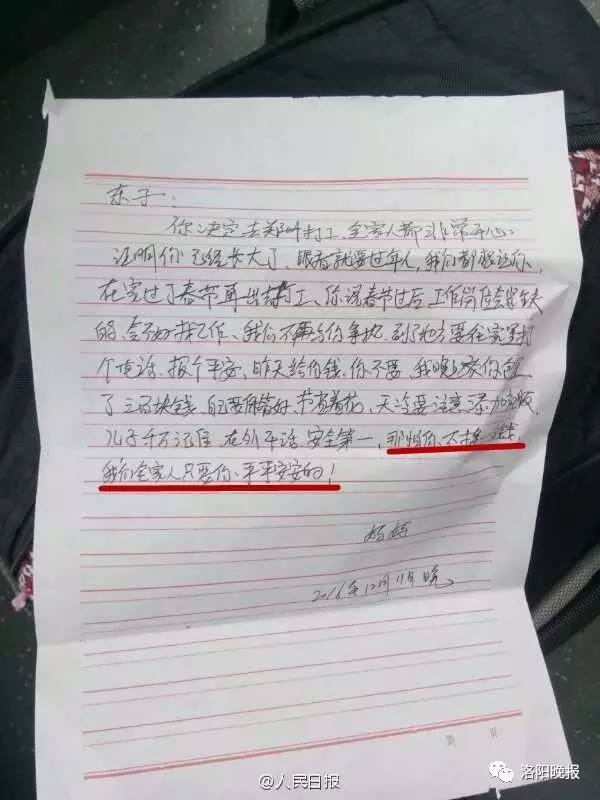 东子:
你决定去郑州打工、全家人都非常开心.
证明你已经长大了、眼看就要过年人,我们都想让你、
在家过了春节再出去打工、你说春节过后工作岗位会紧缺
的、会不好找工作、我们不再与你争执、到了地方要往家里打
个电话、报个平安、昨天给你钱、你不要、我晚上家你
了三百块钱、自己要保管好、节省着花、天冷要注意、添加衣服、
儿子千万记住、在外干活、安全第一、那怕你、不挣
我们全家人只要你、平平安安的!
妈妈
2016年12月11日晚
第 页
@人民日报
洛阳晚报